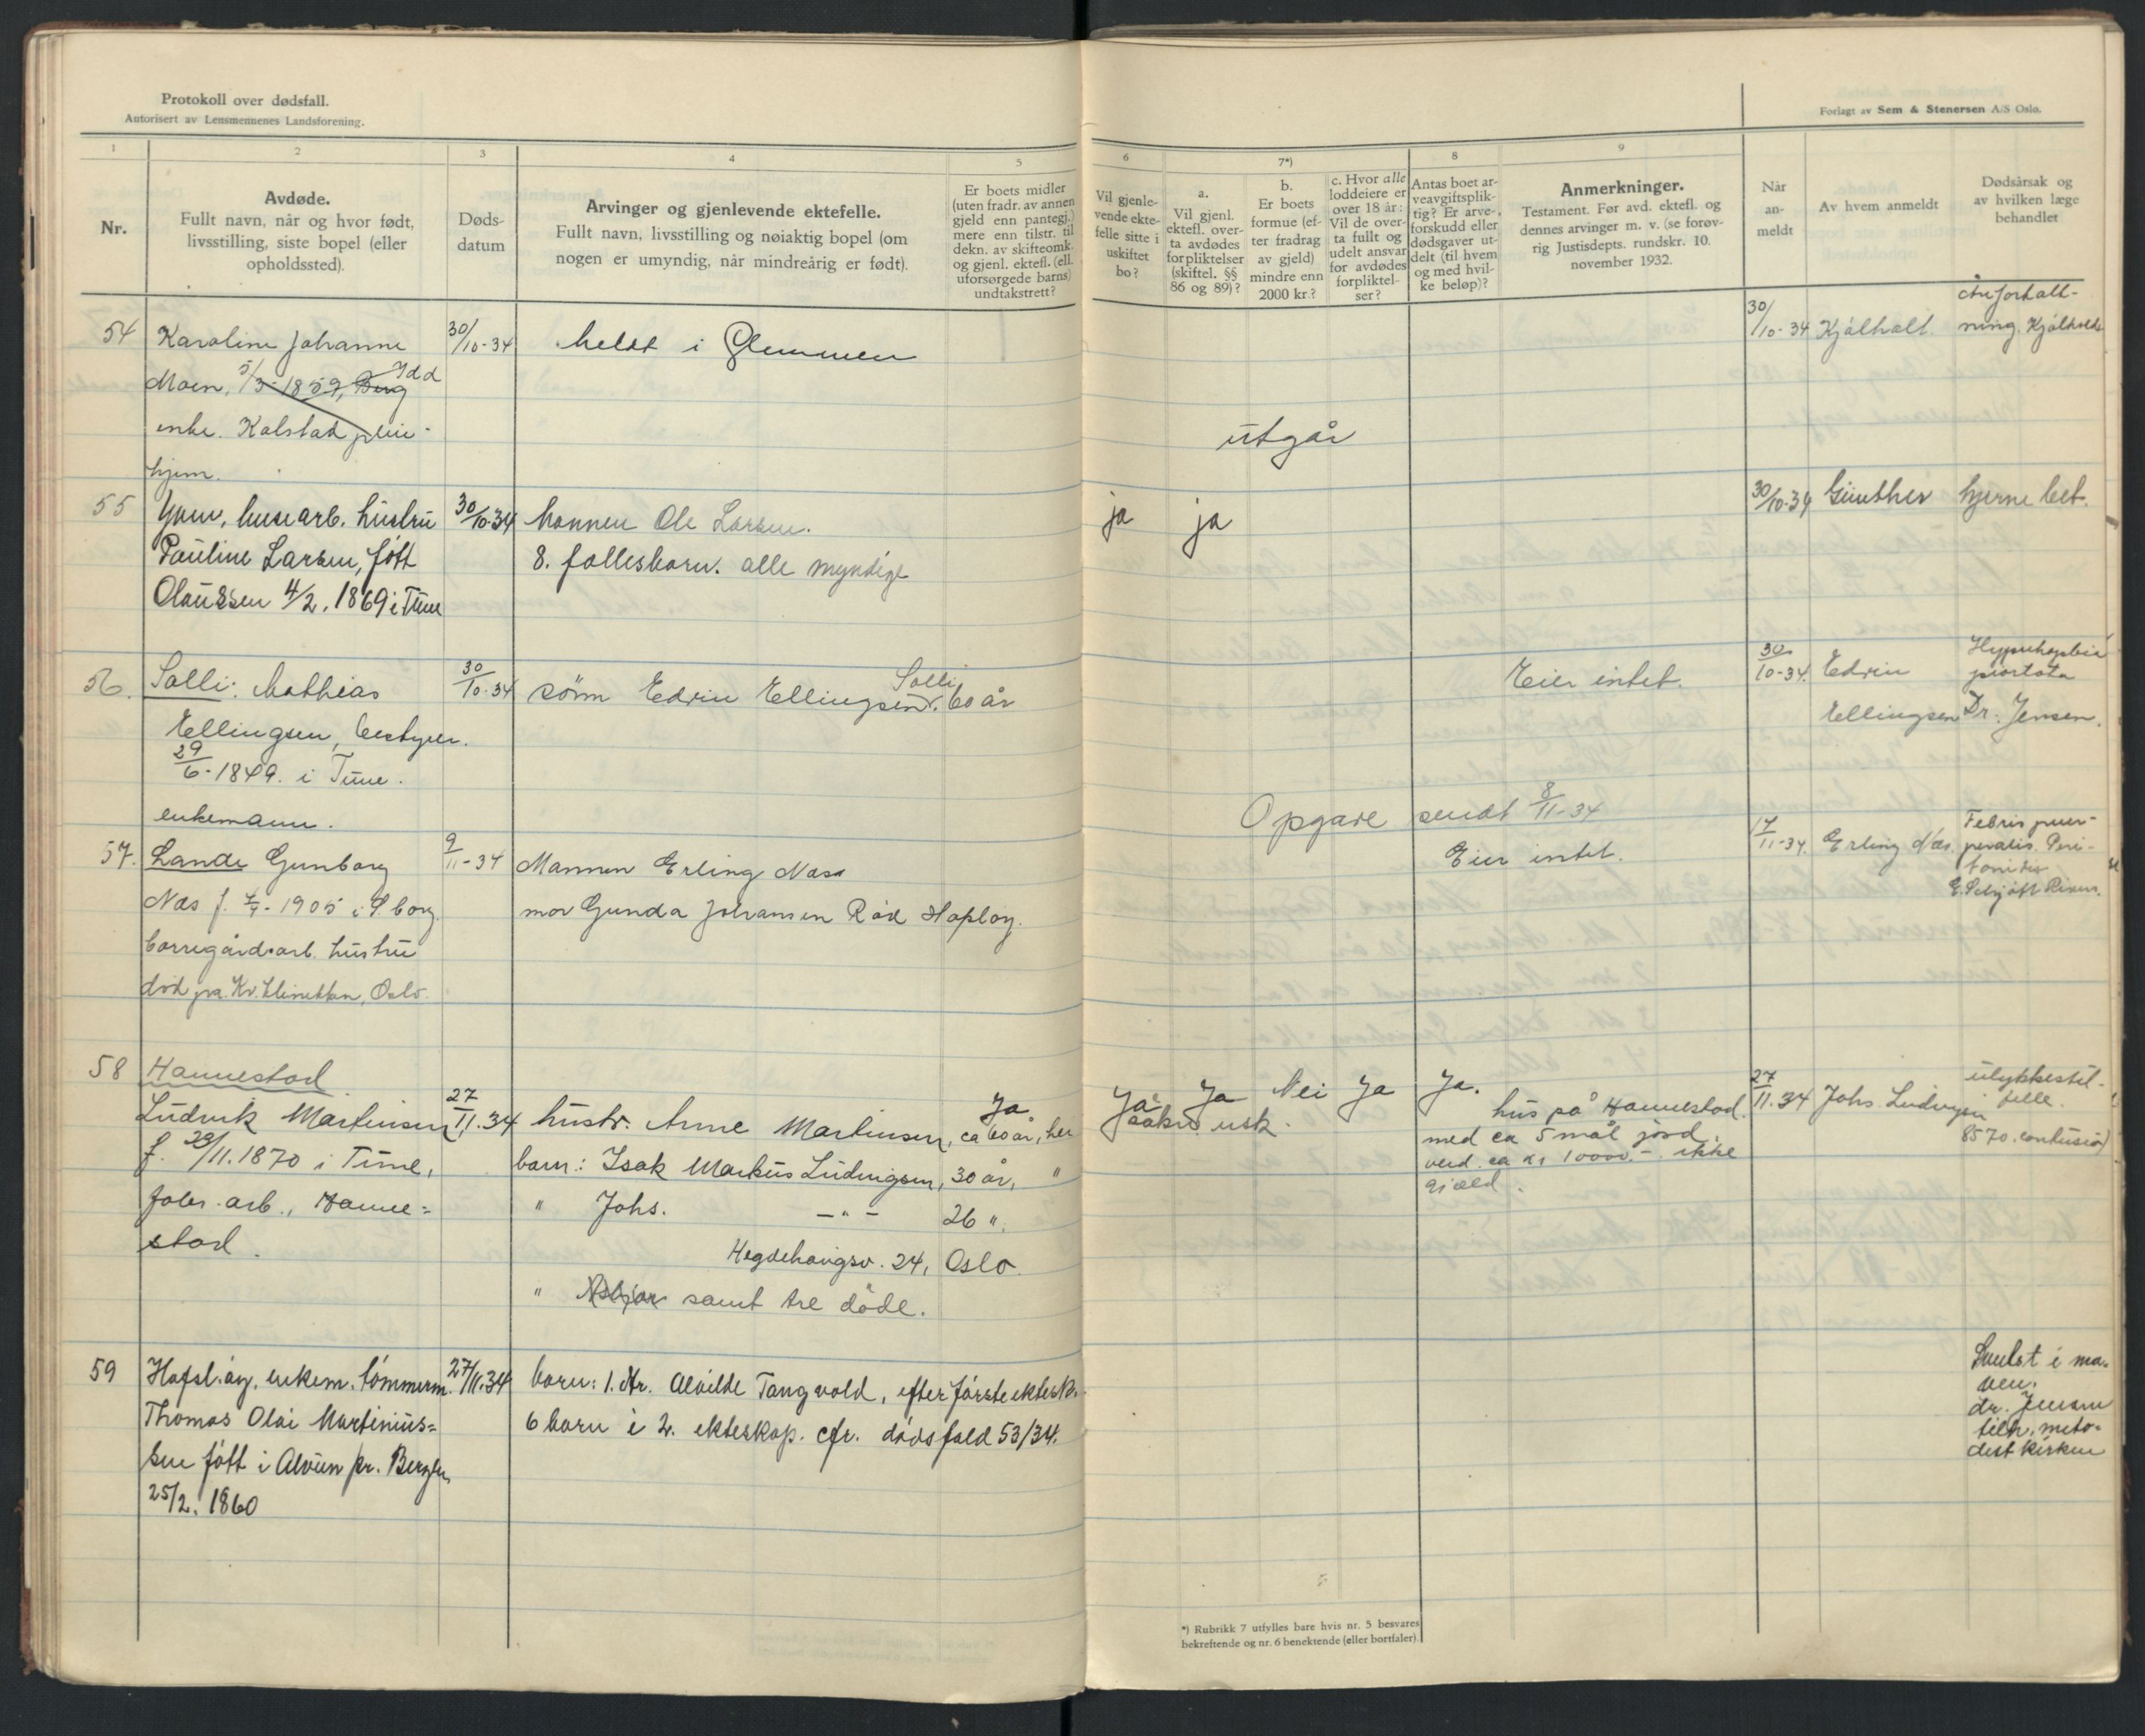 Protokoll over dødsfall.
Autorisert av Lensmennenes Landsforening.
Forlagt av Sem & Stenersen A/S Oslo.
1
2
3
4
5
6
7*)
8
9
Nr.
Avdøde.
Fullt navn, når og hvor født,
livsstilling, siste bopel (eller
opholdssted).
Døds-
datum
Arvinger og gjenlevende ektefelle.
Fullt navn, livsstilling og nøiaktig bopel (om
nogen er umyndig, når mindreårig er født).
Er boets midler
(uten fradr. av annen
gjeld enn pantegj.)
mere enn tilstr. til
dekn. av skifteomk.
og gjenl. ektefl. (ell.
uforsørgede barns)
undtakstrett?
Vil gjenle-
vende ekte-
felle sitte i
uskiftet
bo?
a.
Vil gjenl.
ektefl. over-
ta avdødes
forpliktelser
(skiftel. §§
86 og 89)?
b.
Er boets
formue (ef-
ter fradrag
av gjeld)
mindre enn
2000 kr.?
c. Hvor alle
loddeiere er
over 18 år:
Vil de over-
ta fullt og
udelt ansvar
for avdødes
forpliktel-
ser?
Antas boet ar-
veavgiftsplik-
tig? Er arve-
forskudd eller
dødsgaver ut-
delt (til hvem
og med hvil-
ke beløp)?
Anmerkninger.
Testament. Før avd. ektefl. og
dennes arvinger m. v. (se forøv-
rig Justisdepts. rundskr. 10.
november 1932.
Når
an-
meldt
Av hvem anmeldt
Dødsårsak og
av hvilken læge
behandlet
54
Karoline Johanne
Moen, 5/3-1859, Berg Idd
enke. Kalstad pleie-
hjem.
30/10-34
meldt i Glemmen
utgår
30/10-34
Kjølholt.
ning. Kjølholdt
55
husarb. hustru
Pauline Larsen, født
Olaussen 4/2. 1869 i Tune
30/10-34
Mannen Ole Larsen.
8. fellesbarn. alle myndige
ja
ja
30/10-34
Günther
hjerne
56.
Solli: Mathias
Ellingsen, bestyrer.
29/6-1849. i Tune.
enkemann.
30/10-34
sønn Edvin Ellingsen Solli, 60 år
Eier intet.
30/10-34.
Edvin
Ellingsen
prostata
Dr. Jensen.
57.
Lande Gunborg
Næs f. 1905 i S.borg
borregårdsarb. hustru
død på Kv.klinikken, Oslo.
9/11-34
Mannen Erling Næss
mor Gunda Johansen Råd Hasløy.
Opgave sendt 8/11-34
Eier intet.
17/11-34.
Erling Næs.
Febris puer-
peralis. Peri-
tonitis
58
Hannestad
Ludvik Martinsen
f. 29/11.1870 i Tune,
fabr. arb., Hanne=
stad.
27/11.34
hustr. Anne Martinsen, ca 60 år, her
Ja
barn: Isak Markus Ludvigsen, 30 år, "
" Johs. -"- 26 ".
Hegdehaugsv. 24, Oslo.
" Asbjørn samt tre døde.
Ja
søkn. usk.
Ja
Nei
Ja
Ja.
hus på Hannestad.
med ca 5 mål jord.
verd. ca kr 10000.-. ikke
gjæld.
27/11.34
Johs. Ludvigsen
ulykkestil-
felle.
59
Hafsl.øy. enkem. tømmerm.
Thomas Olai Martinius=
sen født i Alvøen pr. Bergen
25/2. 1860
27/11.34
barn: 1. dtr. Alvilde Tangvold, efter første ektesk.
6 barn i 2. ekteskap. cfr. dødsfald 53/34.
Svulst i ma-
ven.
dr. Jensen
tilh. meto-
distkirken
*) Rubrikk 7 utfylles bare hvis nr. 5 besvares
bekreftende og nr. 6 benektende (eller bortfaler).